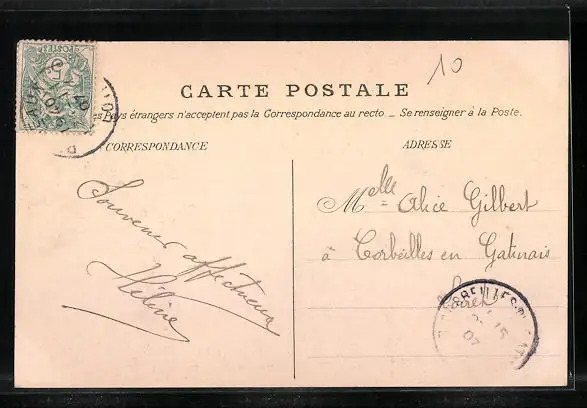 10
CARTE POSTALE
Pays étrangers n'acceptent pas la Correspondance au recto _ Se renseigner à la Poste.
CORRESPONDANCE
ADRESSE
Souvenir affectueux
Hélène
Melle Alice Gilbert
à Corbeilles en Gatinais
Loiret
POSTES
5